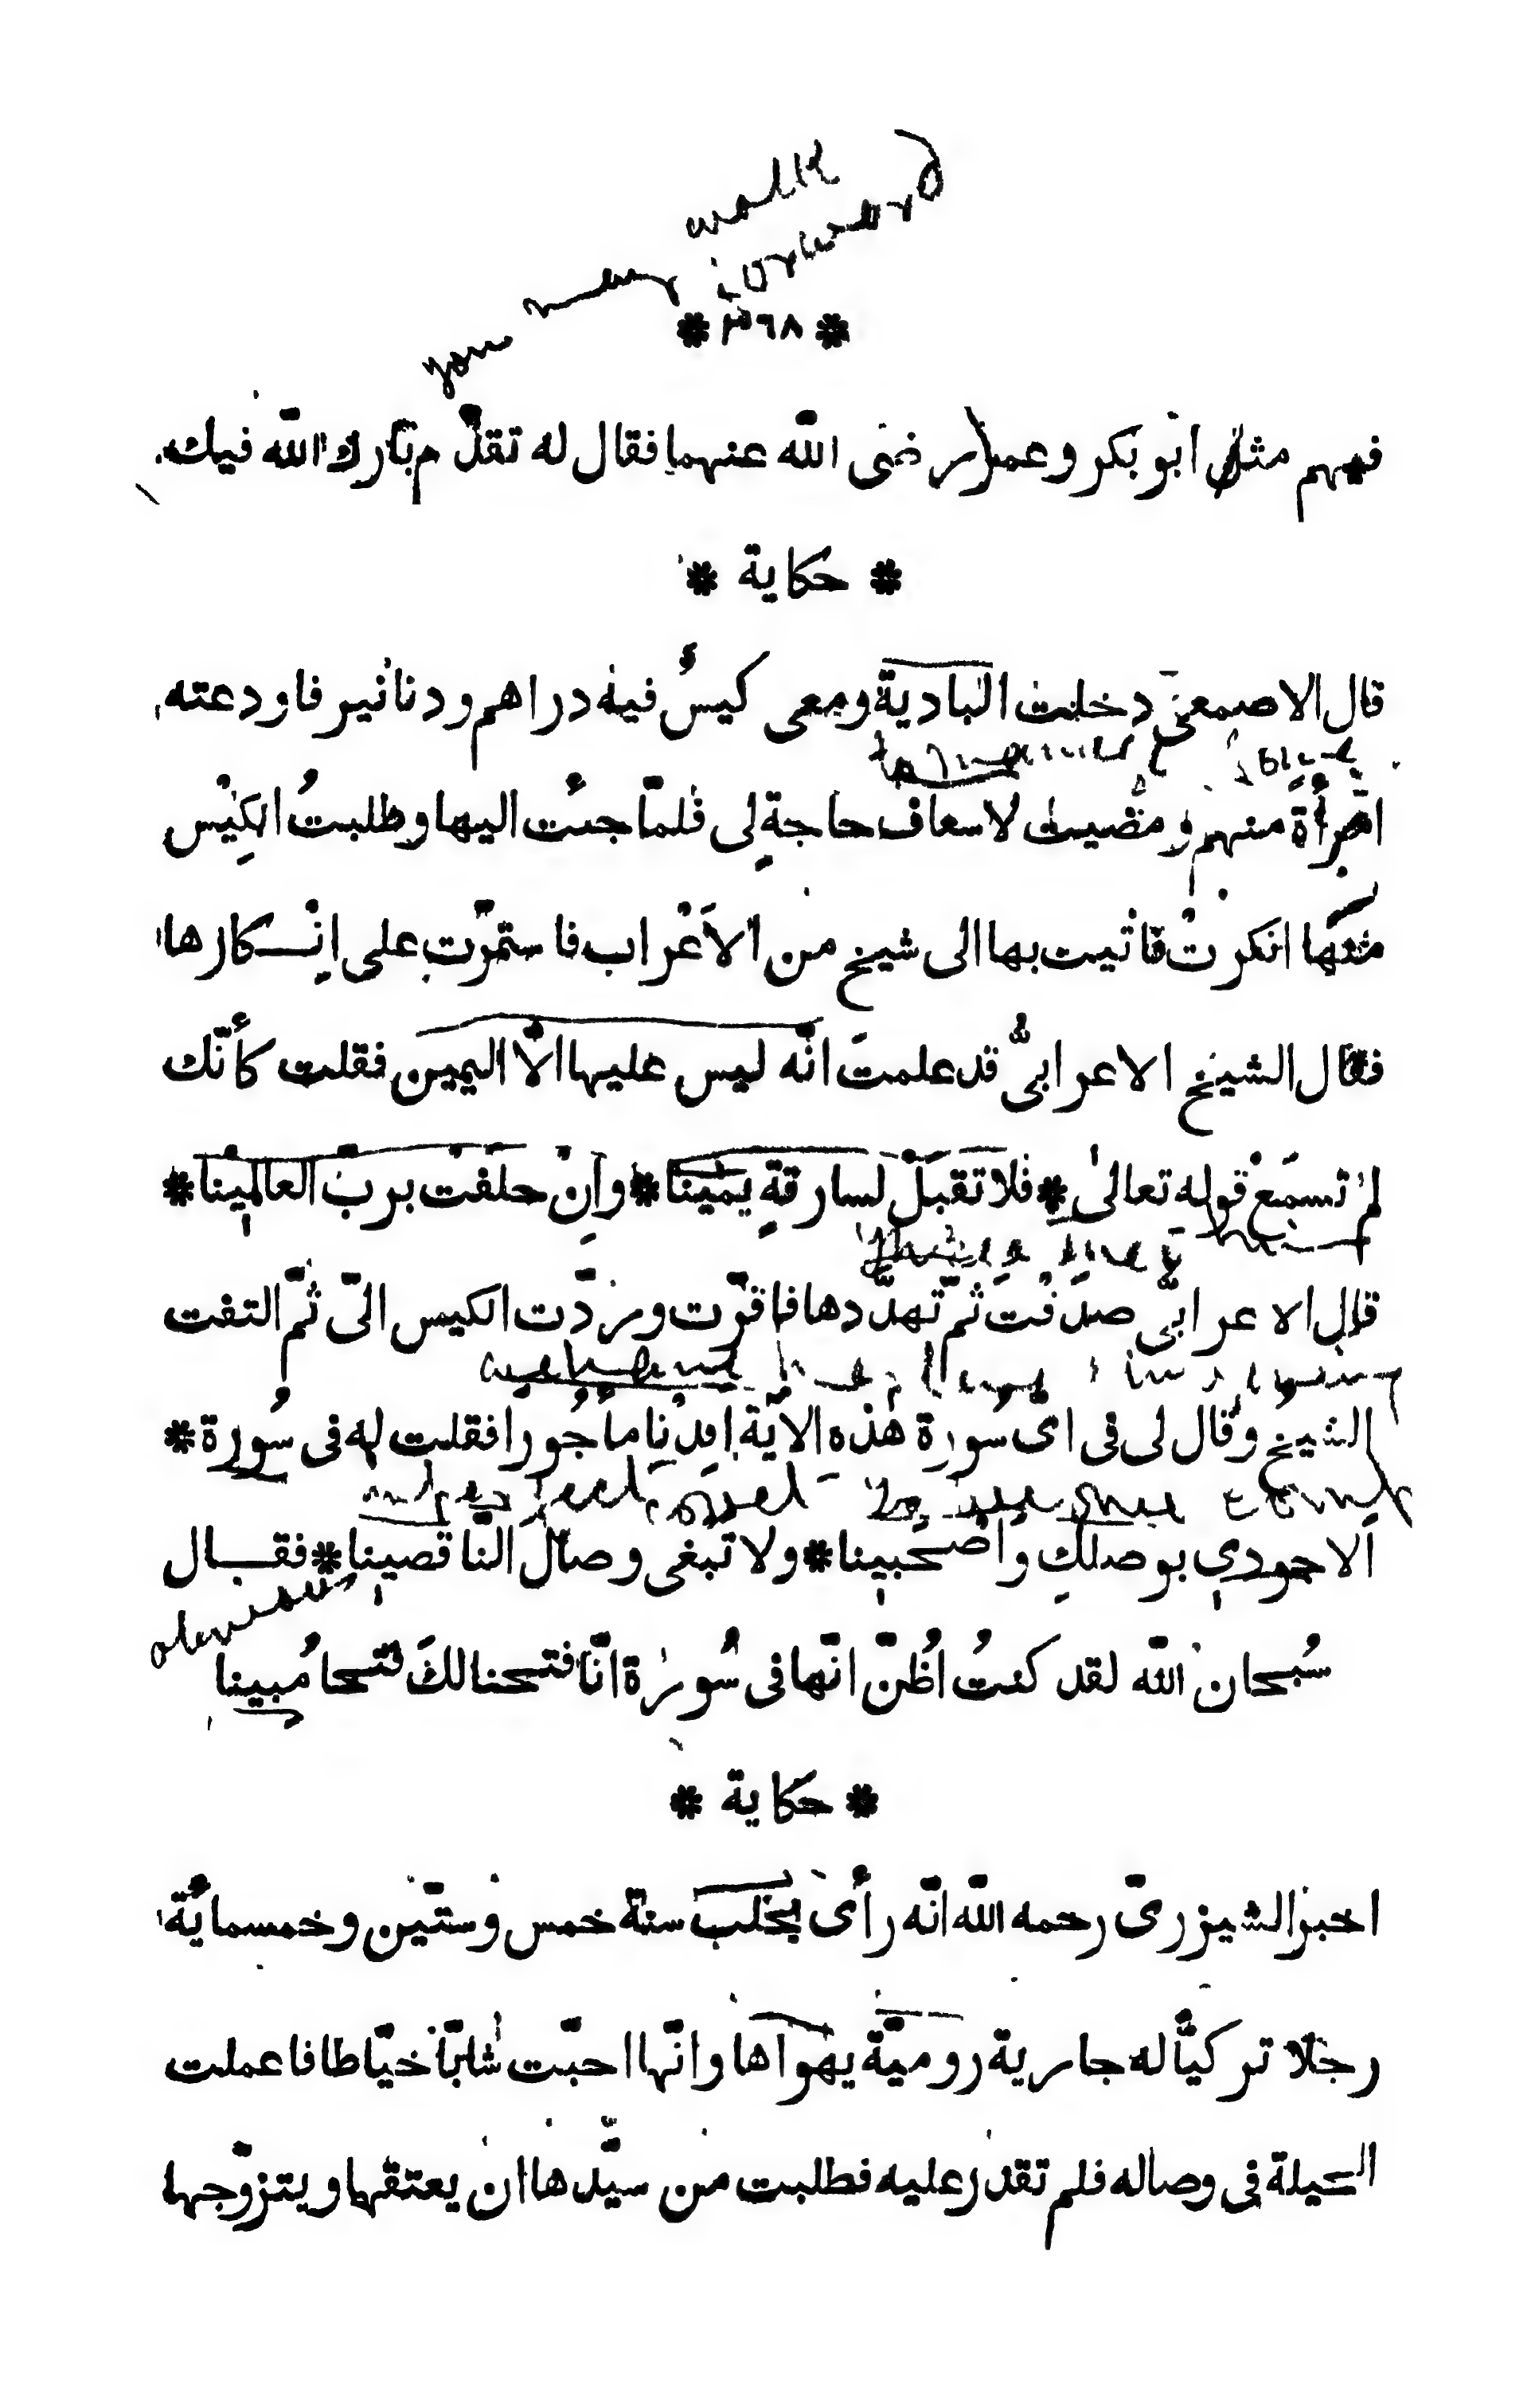 walk
you may forward
* ٣٦٨ *
فيهم مثل ابو بكر وعمر رضى الله عنهما فقال له تقدّم بارك الله فيك
* حكاية *
قال الاصمعى دخلت البادية ومعى كيسٌ فيه دراهم ودنانير فاودعته
امرأة منهم ومضيت لاسعاف حاجةٍ لى فلمّا جئت اليها وطلبتُ الكِيْس
منها انكرتْ فاتيت بها الى شيخ من الاَعْراب فاستمرّت على اِنْـكارها
فقال الشيخ الاعرابىُّ قد علمتَ انّه ليس عليها الّا اليمين فقلت كأنّك
لم تسمَع قوله تعالىٰ * فلا تقبَلْ لسارقةٍ يمْينَا * واِنْ حلَفَتْ بربّ العالمِينا *
قال الاعرابىُّ صدَقْتَ ثمّ تهدّدها فاقرّت وردّت الكيس الىّ ثُمّ التفت
الشيخ وقال لى فى اىّ سُورة هٰذه الآية افِدْنا مأجُورا فقلت له فى سُورة *
الا جودى بوصلكِ واصْحَبِينا * ولا تبغى وصالَ النّاقصِينا * فقـال
سُبحان الله لقد كنتُ اظُنّ انّها فى سُورة انّا فتحنا لكَ فتحا مُبينا
* حكاية *
اخبر الشيزرىّ رحمه الله انّه رأى بحلب سنة خمس وستّين وخمسمايُة
رجلا تركيّاً له جارية روميّة يهواها وانّها احبّت شابّا خيّاطا فاعملت
الحيلة فى وصاله فلم تقدر عليه فطلبت من سيّدها ان يعتقها ويتزوّجها